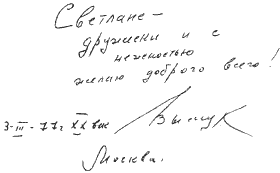 Светлане –
дружески и с
нежностью
желаю доброго всего!
3-III-77г XX век
Москва.